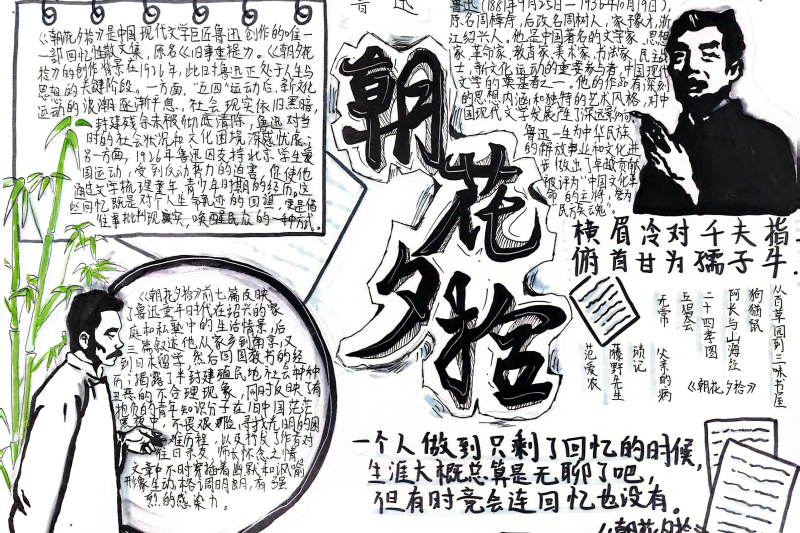 《朝花夕拾》是中国现代文学巨匠鲁迅创作的唯一
一部回忆性散文集，原名《旧事重提》。《朝花夕
拾》的创作背景在1926年，此时鲁迅正处于人生与
思想的关键阶段。一方面，"五四"运动后，新文化
运动的浪潮逐渐平息，社会现实依旧黑暗，
封建残余未被彻底清除，鲁迅对当
时的社会状况和文化困境深感忧虑。
另一方面，1926年鲁迅因支持北京学生爱
国运动，受到反动势力的迫害，促使他
通过文字梳理童年、青少年时期的经历。这
些回忆既是对个人生命轨迹的回望，更是借
往事批判现实，唤醒民众的一种方式。
朝花夕拾
鲁迅
鲁迅（1881年9月25日-1936年10月19日），
原名周樟寿，后改名周树人，字豫才，浙
江绍兴人。他是中国著名的文学家、思想
家、革命家、教育家、美术家、书法家、民主战
士，新文化运动的重要参与者，中国现代
文学的奠基者之一。他的作品有深刻
的思想内涵和独特的艺术风格，对中
国现代文学发展产生了深远影响。
鲁迅一生为中华民族
的解放事业和文化进
步做出了卓越贡献
被评为"中国文化革
命的主将"，誉为
民族魂
横眉冷对千夫指
俯首甘为孺子牛
《朝花夕拾》前七篇反映
了鲁迅童年时代在绍兴的家
庭和私塾中的生活情景，后
三篇叙述他从家乡到南京，又
到日本留学，然后回国教书的经
历；揭露了半封建殖民地社会种种
丑恶的不合理现象，同时反映了有
抱负的青年知识分子在旧中国茫茫
黑夜中，不畏艰险，寻找光明的困
难历程，以及抒发了作者对
往日亲友、师长怀念之情
文章中不时穿插着幽默和讽喻
形象生动，格调明朗，有强
烈的感染力。
从百草园到三味书屋
狗猫鼠
阿长与山海经
二十四孝图
五猖会
无常
《朝花夕拾》
父亲的病
琐记
藤野先生
范爱农
一个人做到只剩了回忆的时候，
生涯大概总算是无聊了吧，
但有时竟会连回忆也没有。
《朝花夕拾》